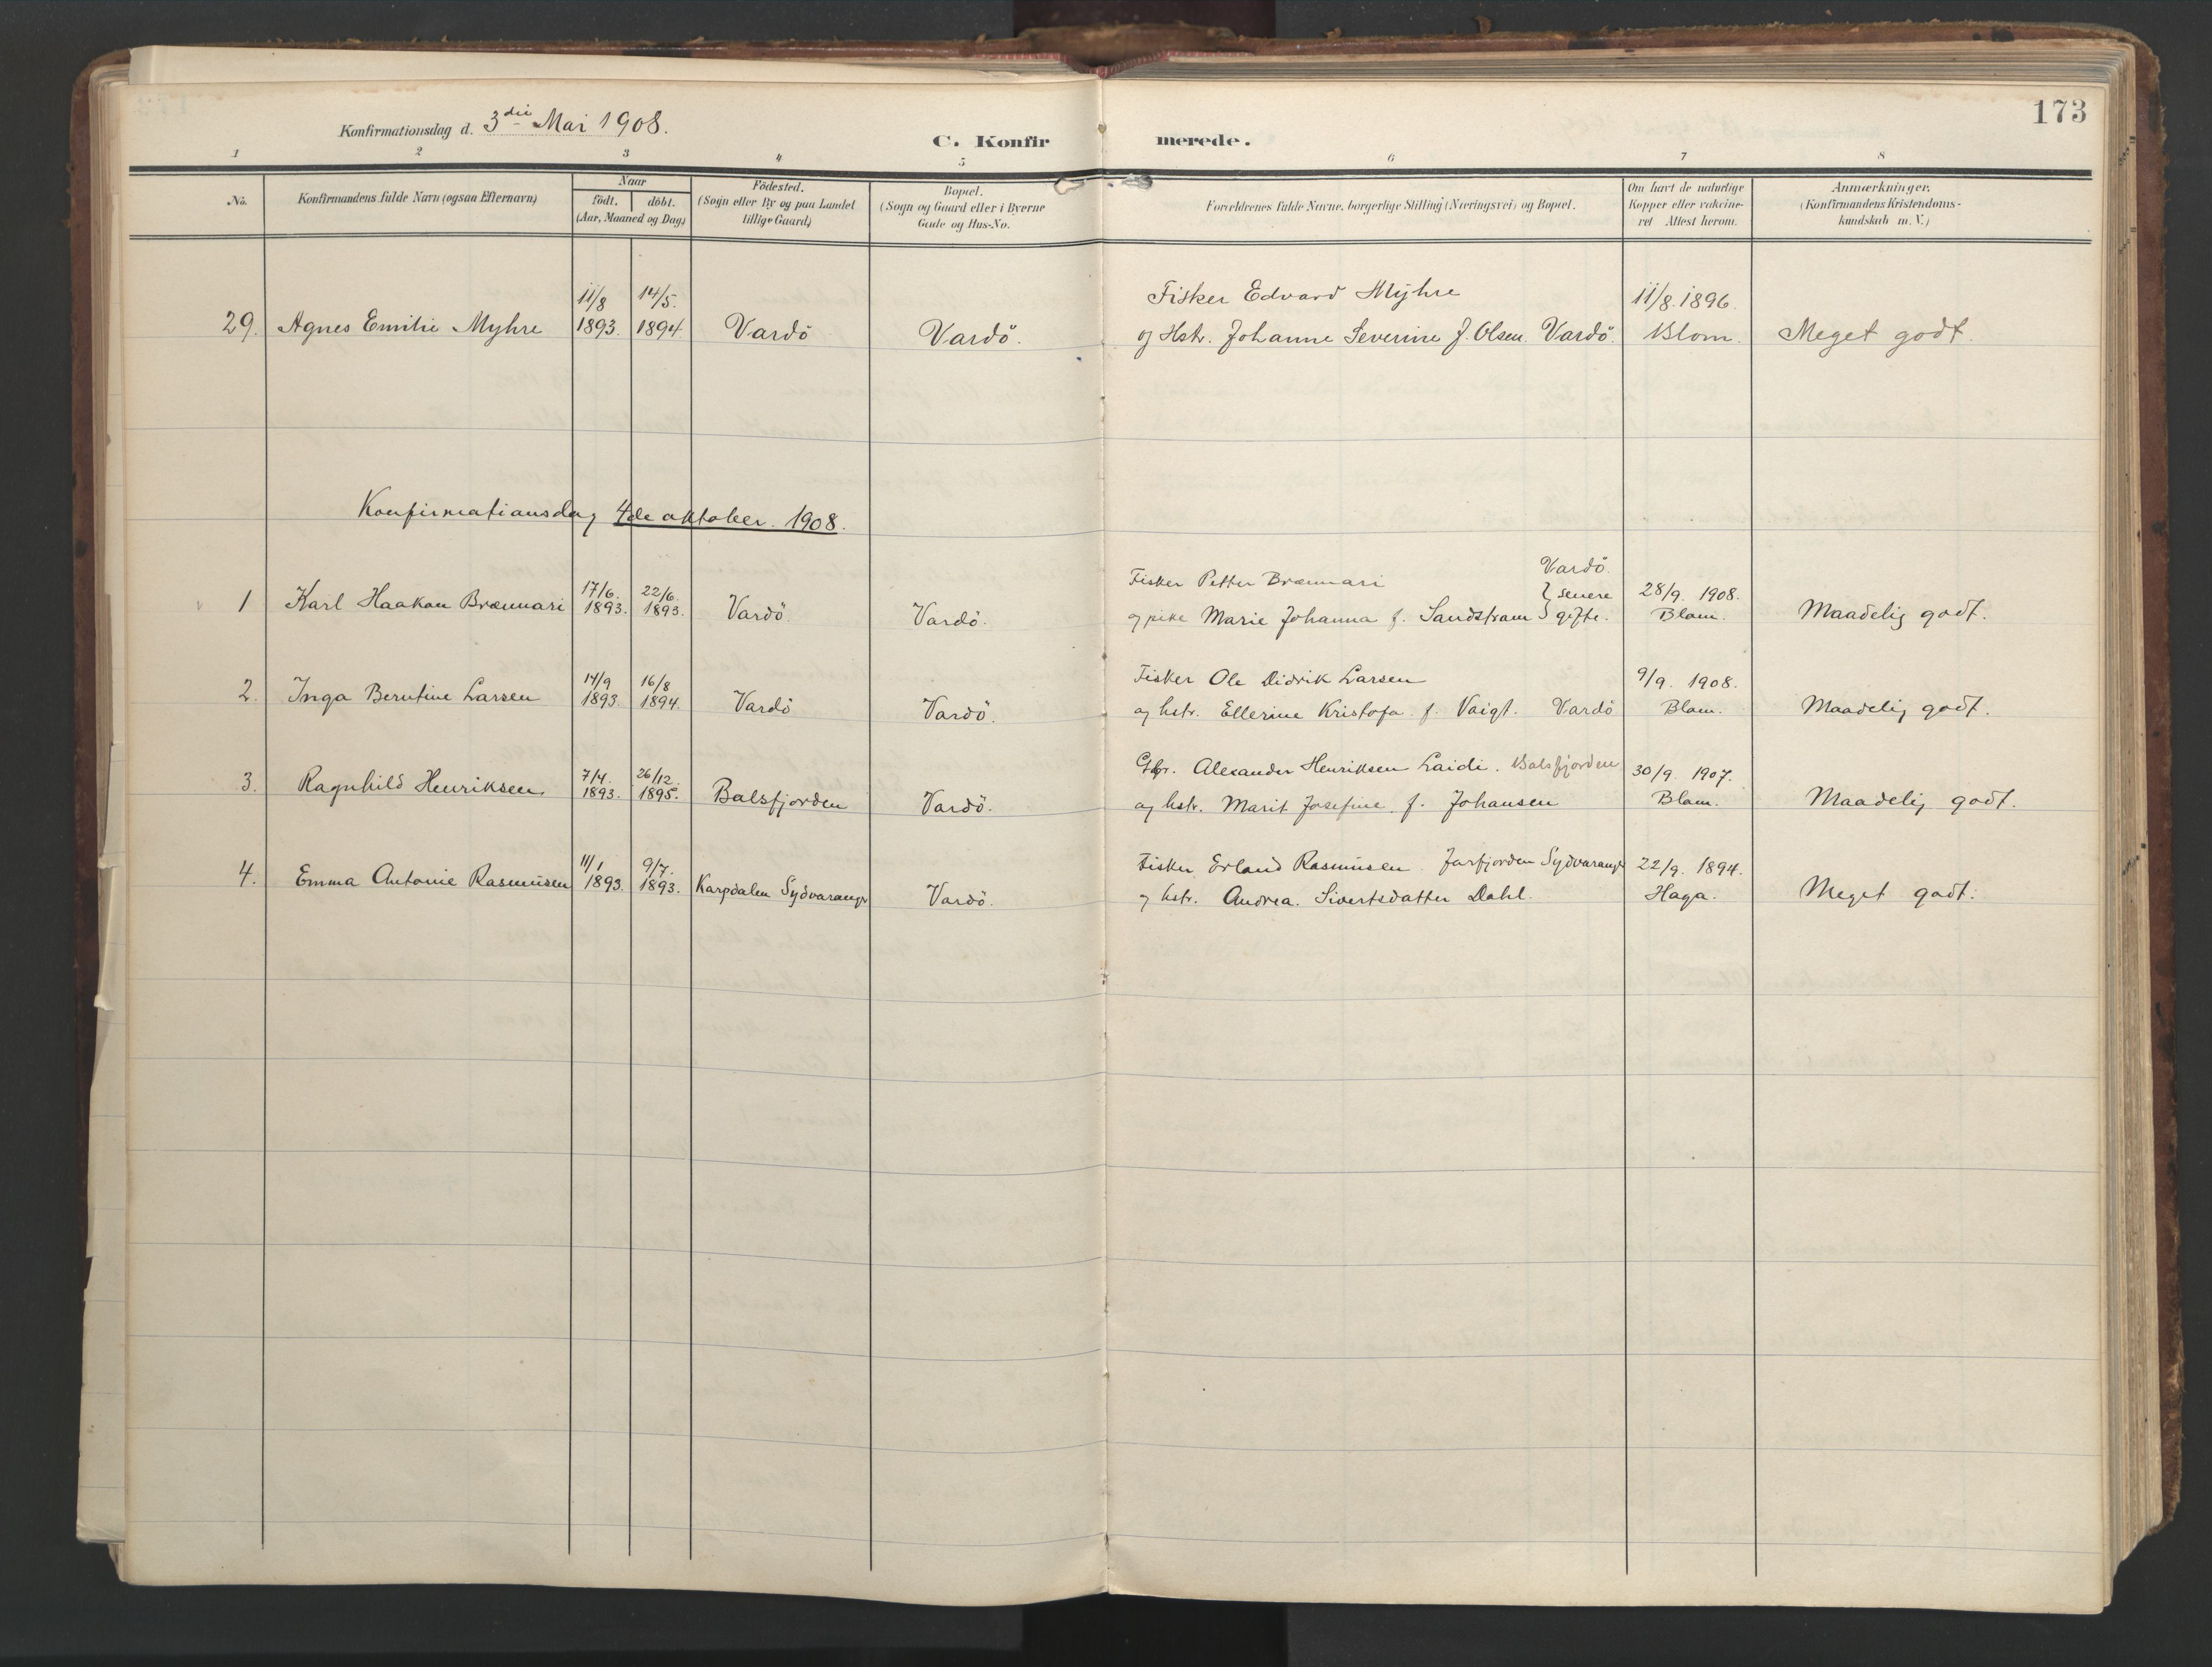 173
Konfirmationsdag d. 3die Mai 1908.
C. Konfirmerede.
1 2 3 4 5 6 7 8
No.
Konfirmandens fulde Navn (ogsaa Efternavn)
Naar
födt. döbt.
(Aar, Maaned og Dag)
Födested.
(Sogn eller By og paa Landet
tillige Gaard)
Bopæl.
(Sogn og Gaard eller i Byerne
Gade og Hus-No.
Forældrenes fulde Navne, borgerlige Stilling (Næringsvei) og Bopæl.
Om havt de naturlige
Kopper eller vakcine-
ret Attest herom.
Anmærkninger.
(Konfirmandens Kristendoms-
kundskab m. V.)
11/8 14/5. Fisker Edvard Myhre 11/8. 1896.
29. Agnes Emilie Myhre 1893. 1894. Vardö Vardö. og Hstr. Johanne Severine f. Olsen. Vardö. Blom. Meget godt.
Konfirmationsdag 4de oktober. 1908.
17/6. 22/6. Fisker Petter Brænnari Vardö. 28/9. 1908.
1 Karl Haakon Brænnari 1893. 1893. Vardö. Vardö. og pike Marie Johanna f. Sandstrøm } senere gifte. Blom. Maadelig godt.
14/9 16/8 Fisker Ole Didrik Larsen 9/9. 1908.
2. Inga Berntine Larsen 1893. 1894. Vardö Vardö. og hstr. Ellerine Kristofa f. Vaigt. Vardö Blom. Maadelig godt.
7/4. 26/12. Gbr. Alexander Henriksen Laidi. Balsfjorden 30/9. 1907.
3. Ragnhild Henriksen 1893. 1895. Balsfjorden Vardö. og hstr. Marit Josefine f. Johansen Blom. Maadelig godt.
11/1 9/7. Fisker Erland Rasmusen Jarfjorden Sydvaranger 22/9. 1894.
4. Emma Antonie Rasmusen 1893. 1893. Karpdalen Sydvaranger Vardö. og hstr. Andrea. Sivertsdatter Dahl. Haga. Meget godt.